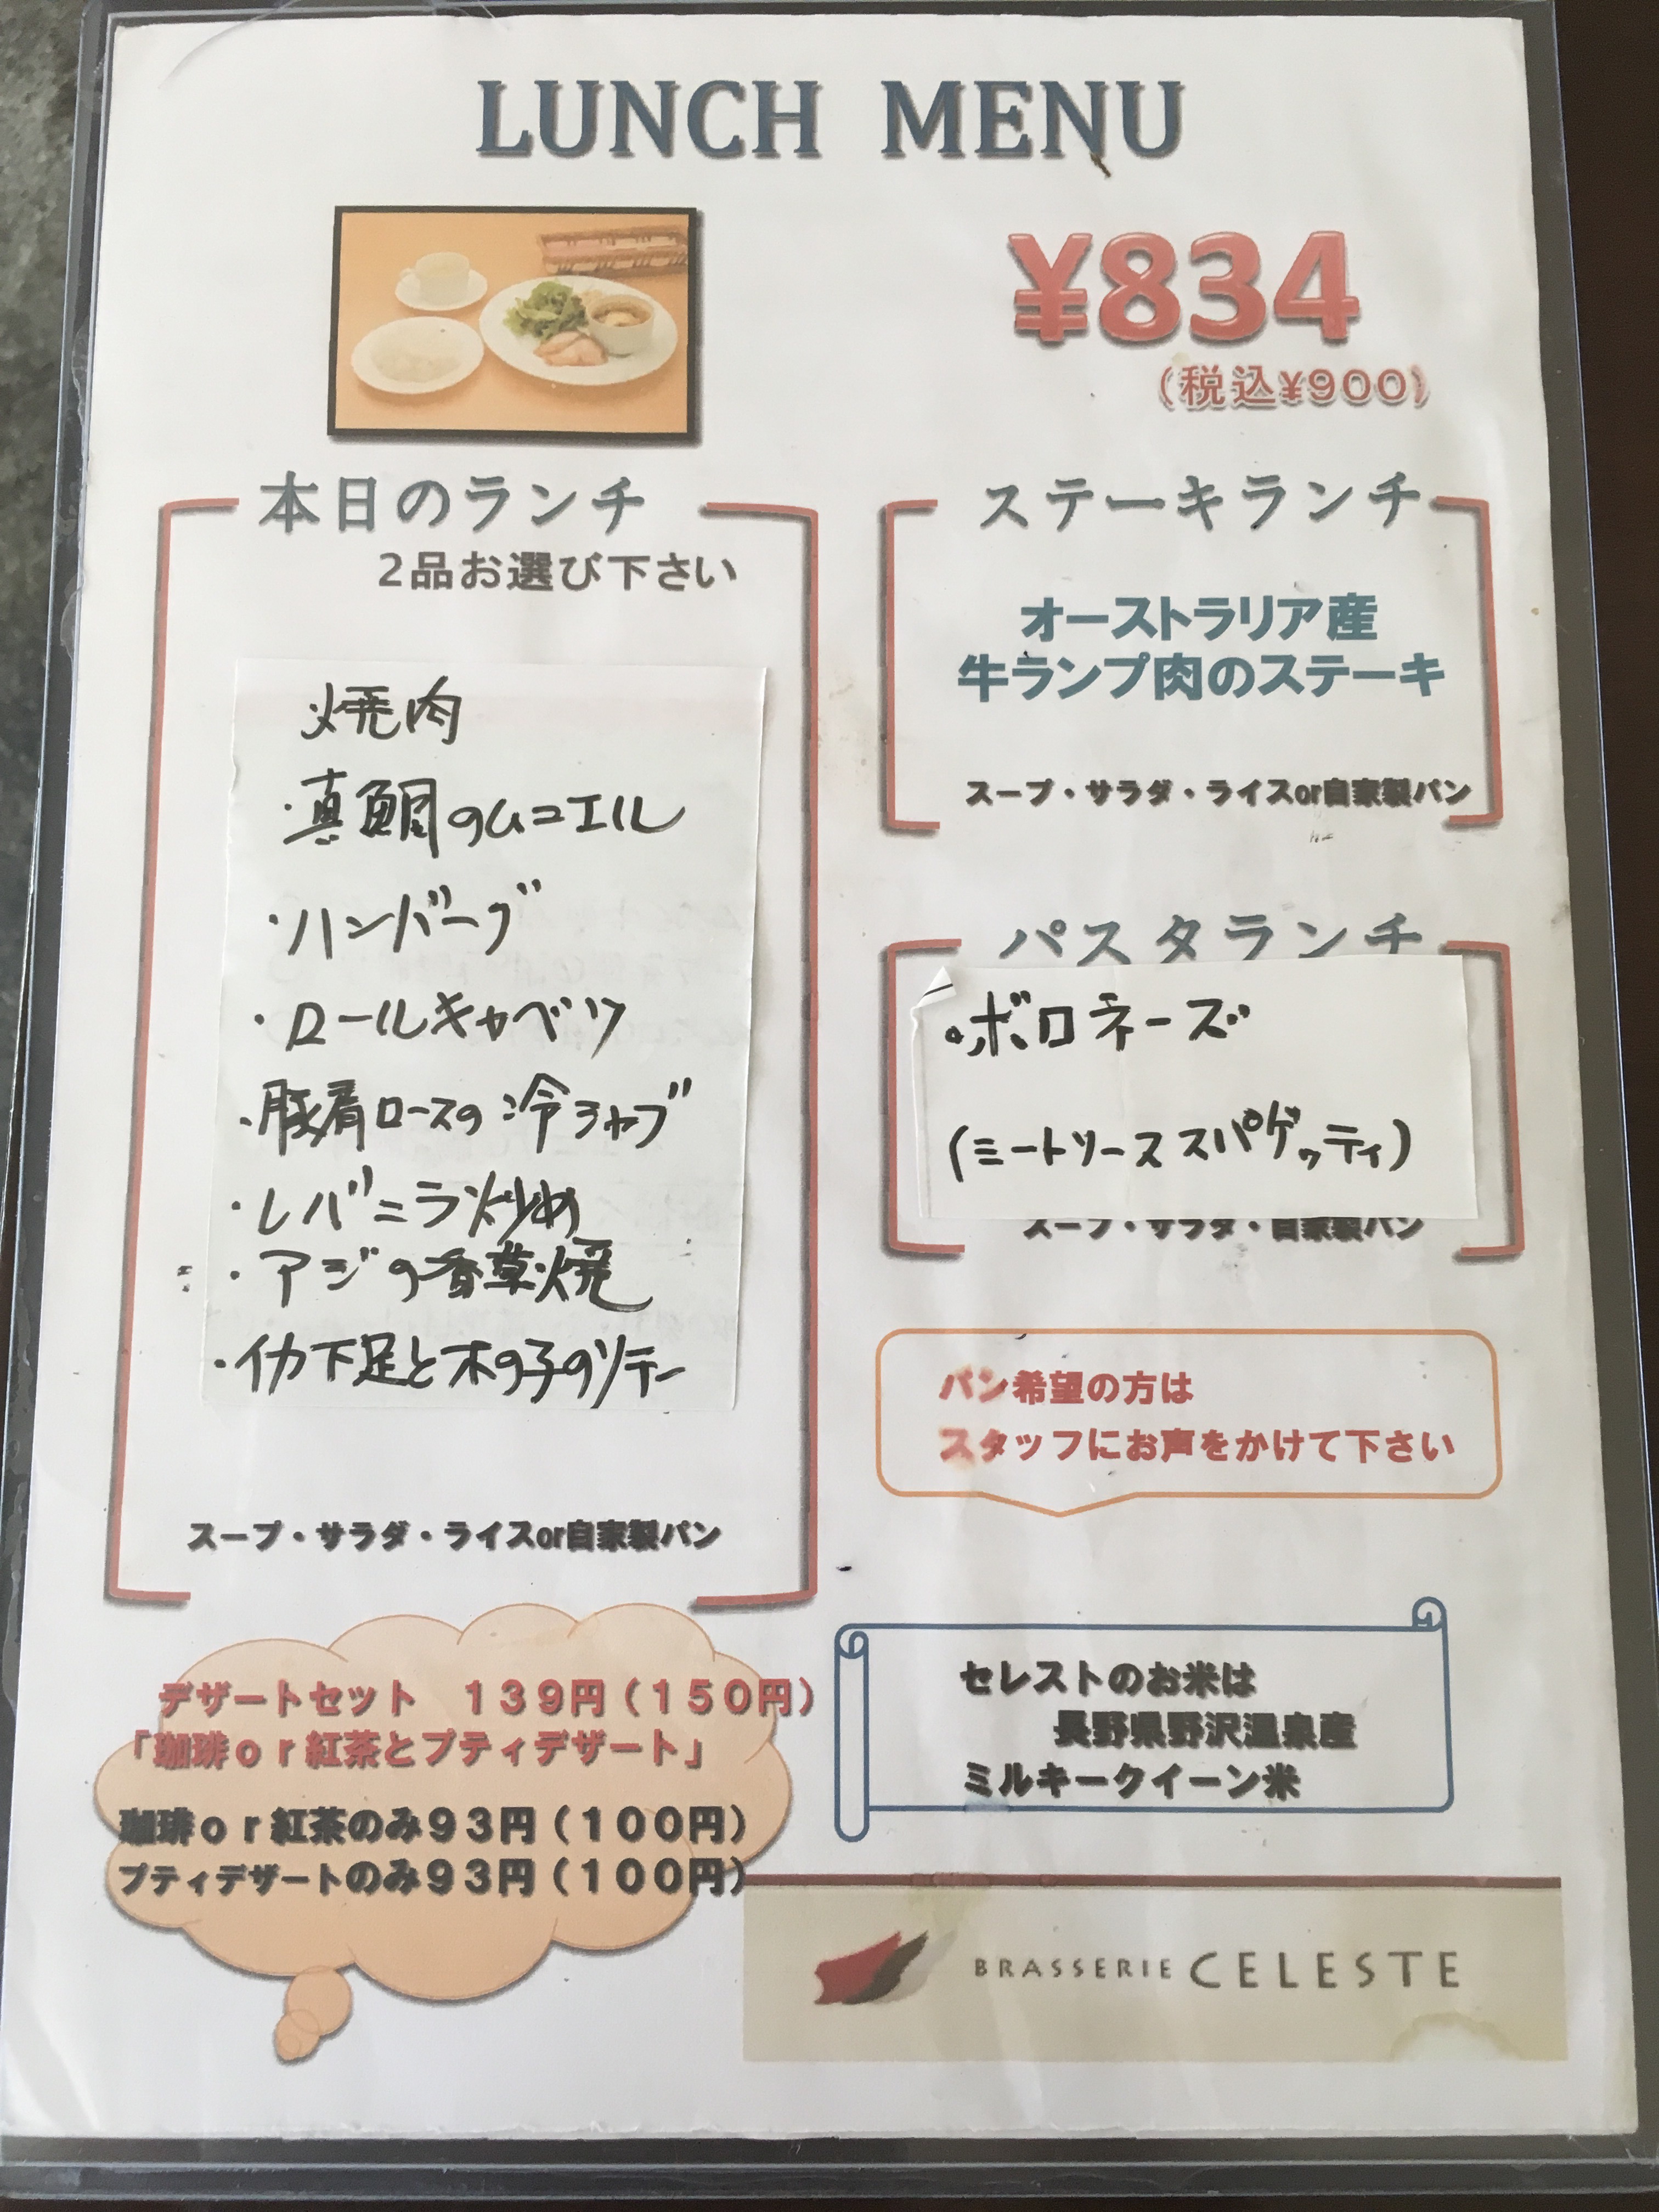 LUNCH MENU
¥834
（税込¥900）
本日のランチ
2品お選び下さい
焼肉
・真鯛のムニエル
・ハンバーグ
・ロールキャベツ
・豚肩ロースの冷シャブ
・レバニラ炒め
・アジの香草焼
・イカ下足と木の子のソテー
スープ・サラダ・ライスor自家製パン
ステーキランチ
オーストラリア産
牛ランプ肉のステーキ
スープ・サラダ・ライスor自家製パン
パスタランチ
・ボロネーズ
(ミートソーススパゲッティ)
スープ・サラダ・自家製パン
パン希望の方は
スタッフにお声をかけて下さい
デザートセット　139円（150円）
「珈琲or紅茶とプティデザート」
珈琲or紅茶のみ93円（100円）
プティデザートのみ93円（100円）
セレストのお米は
長野県野沢温泉産
ミルキークイーン米
BRASSERIE CELESTE